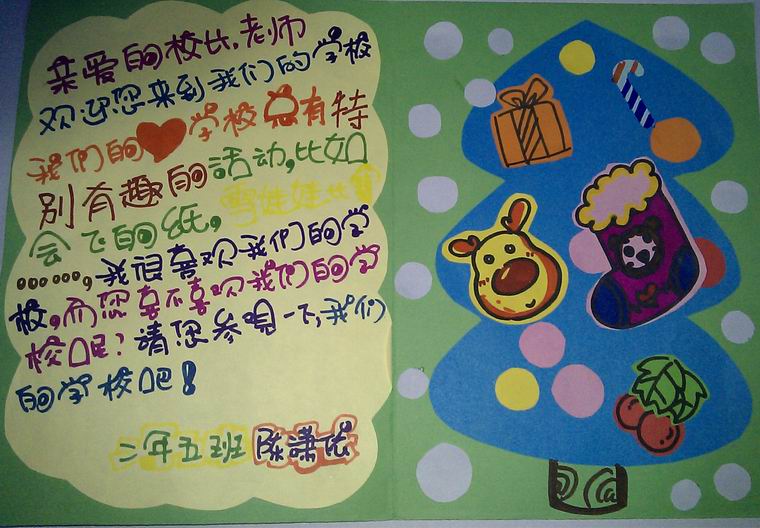 亲爱的校长,老师
欢迎您来到我们的学校
我们的❤学校总有特
别有趣的活动,比如
会飞的纸,雪娃娃比赛
……,我很喜欢我们的学
校,而您喜不喜欢我们的学
校呢?请您参观一下,我们
的学校吧!
二年五班 陈谦优